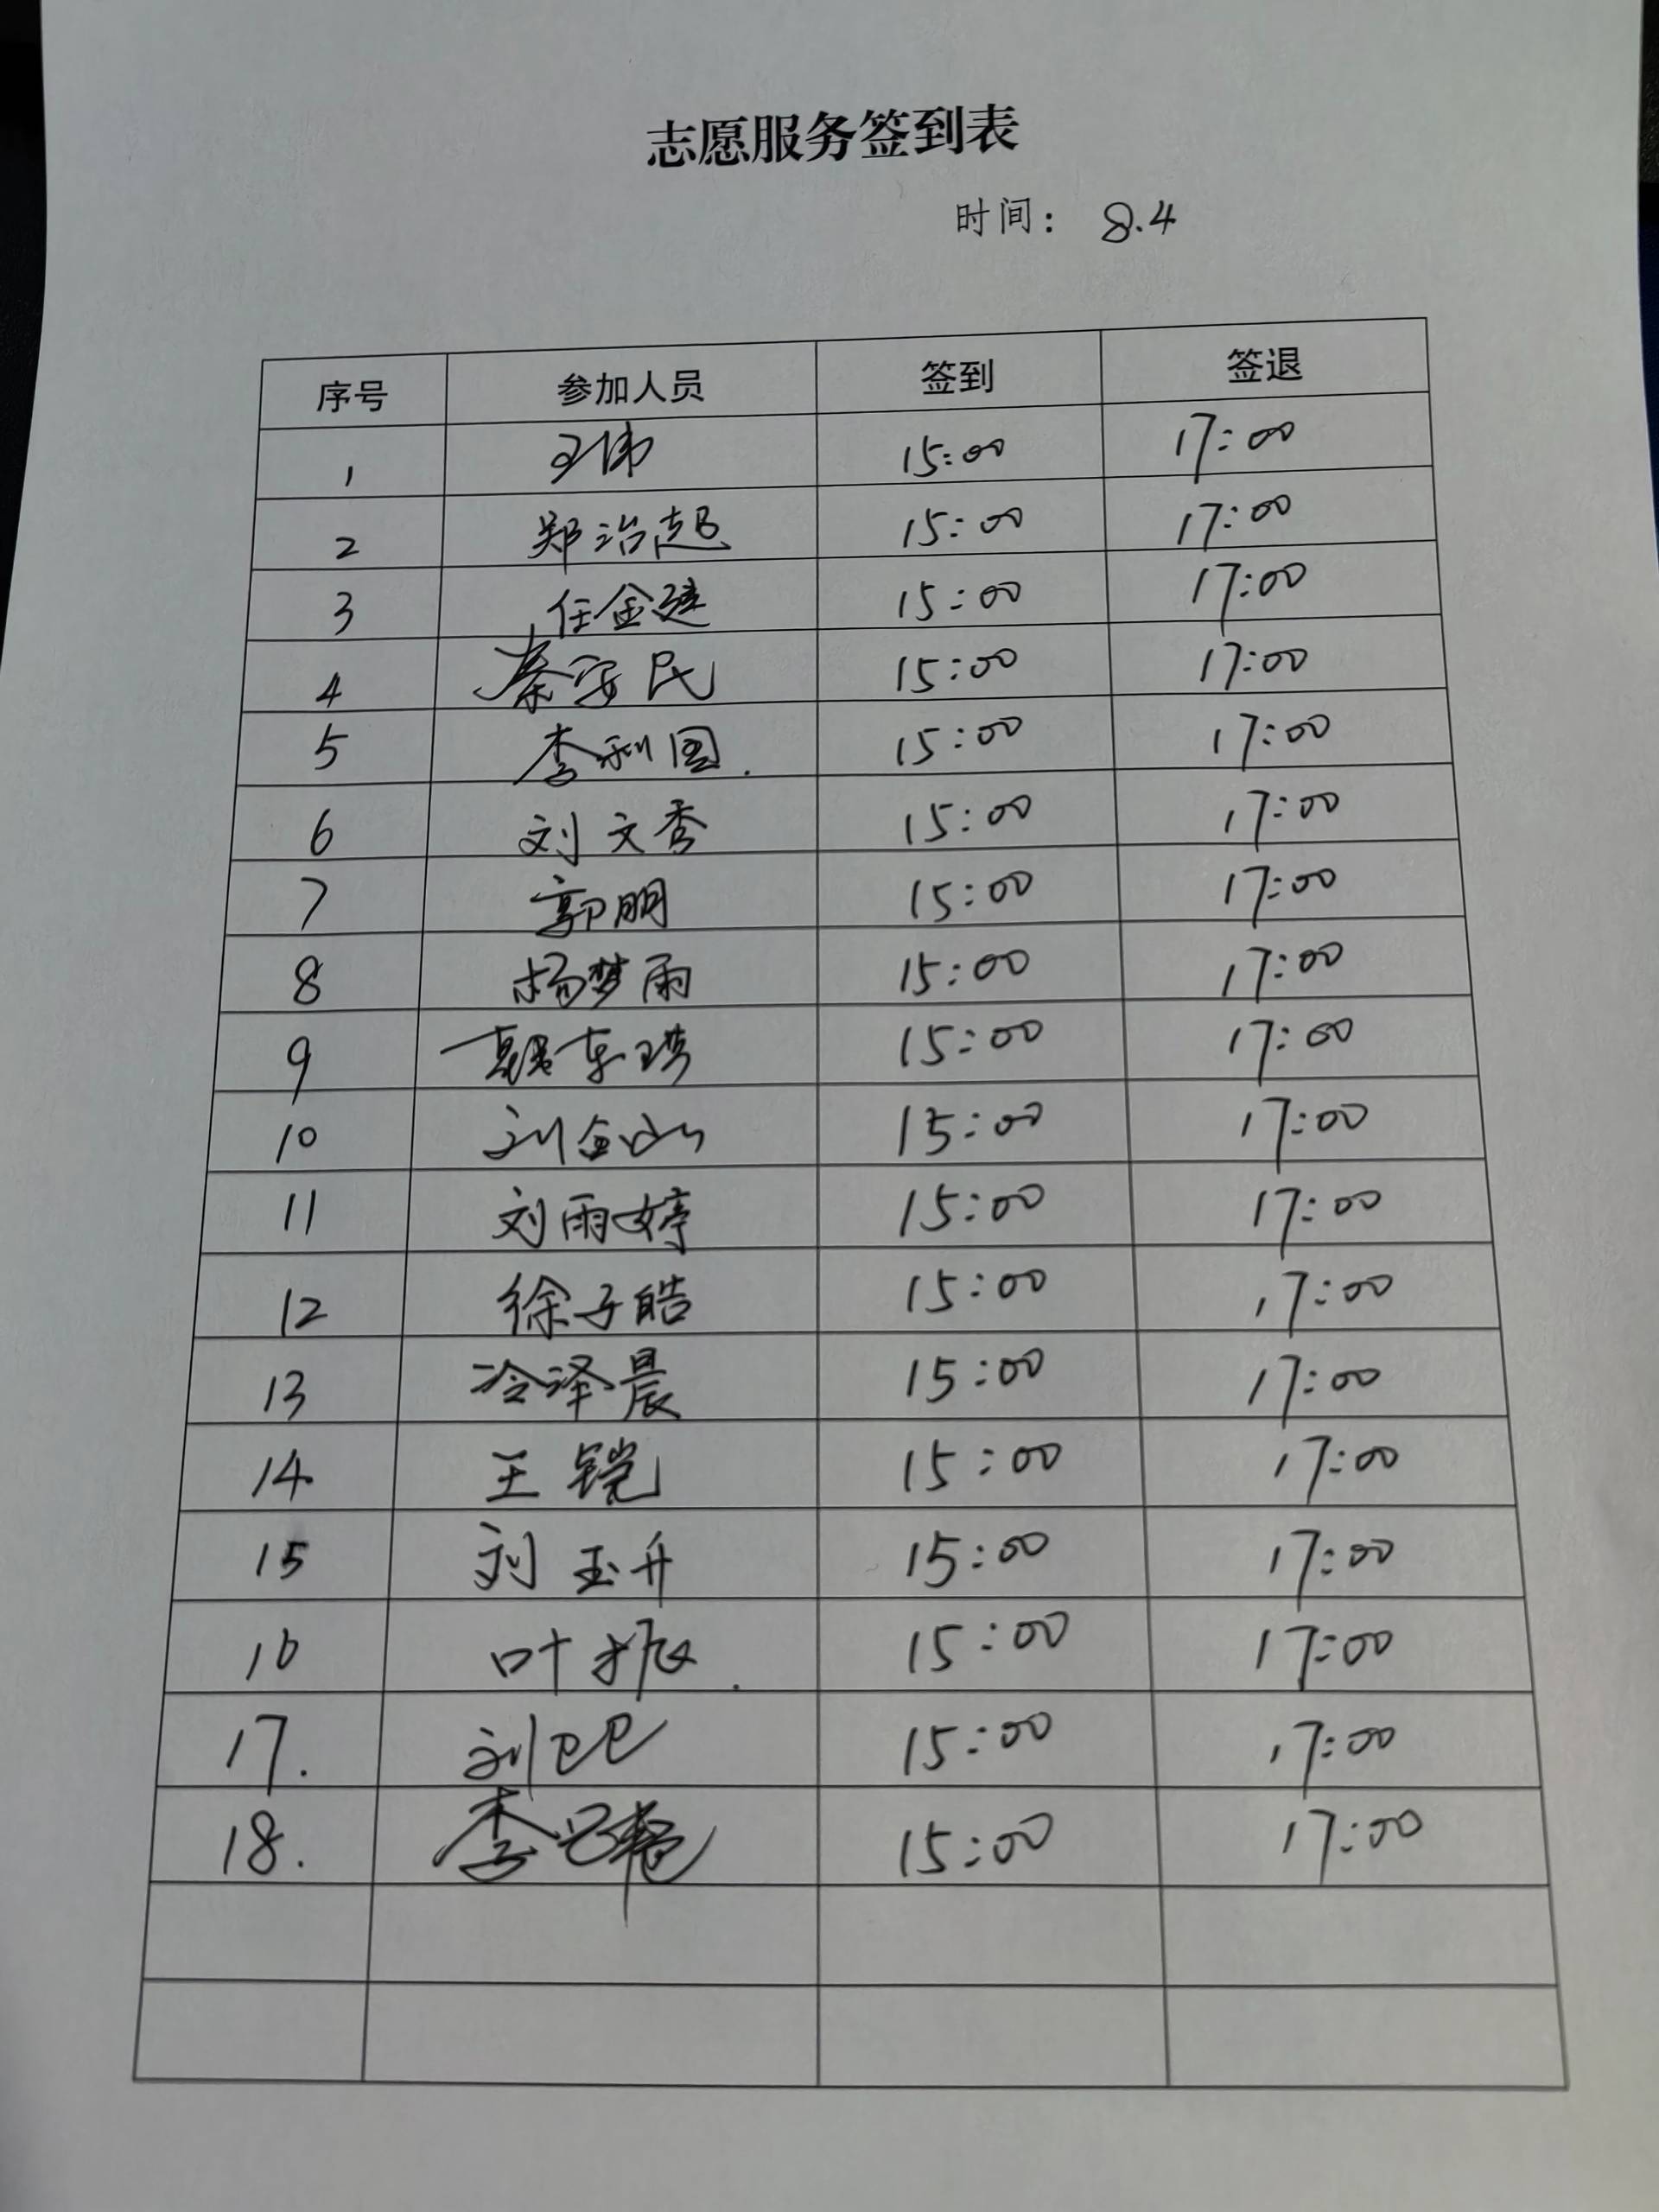 志愿服务签到表
时间： 8.4
序号 参加人员 签到 签退
1 王伟 15:00 17:00
2 郑治起 15:00 17:00
3 任金建 15:00 17:00
4 秦安民 15:00 17:00
5 李利国. 15:00 17:00
6 刘文秀 15:00 17:00
7 郭朋 15:00 17:00
8 杨梦雨 15:00 17:00
9 15:00 17:00
10 刘金山 15:00 17:00
11 刘雨婷 15:00 17:00
12 徐子皓 15:00 17:00
13 冷泽晨 15:00 17:00
14 王铠 15:00 17:00
15 刘玉升 15:00 17:00
16 叶振. 15:00 17:00
17. 刘巴巴 15:00 17:00
18. 15:00 17:00